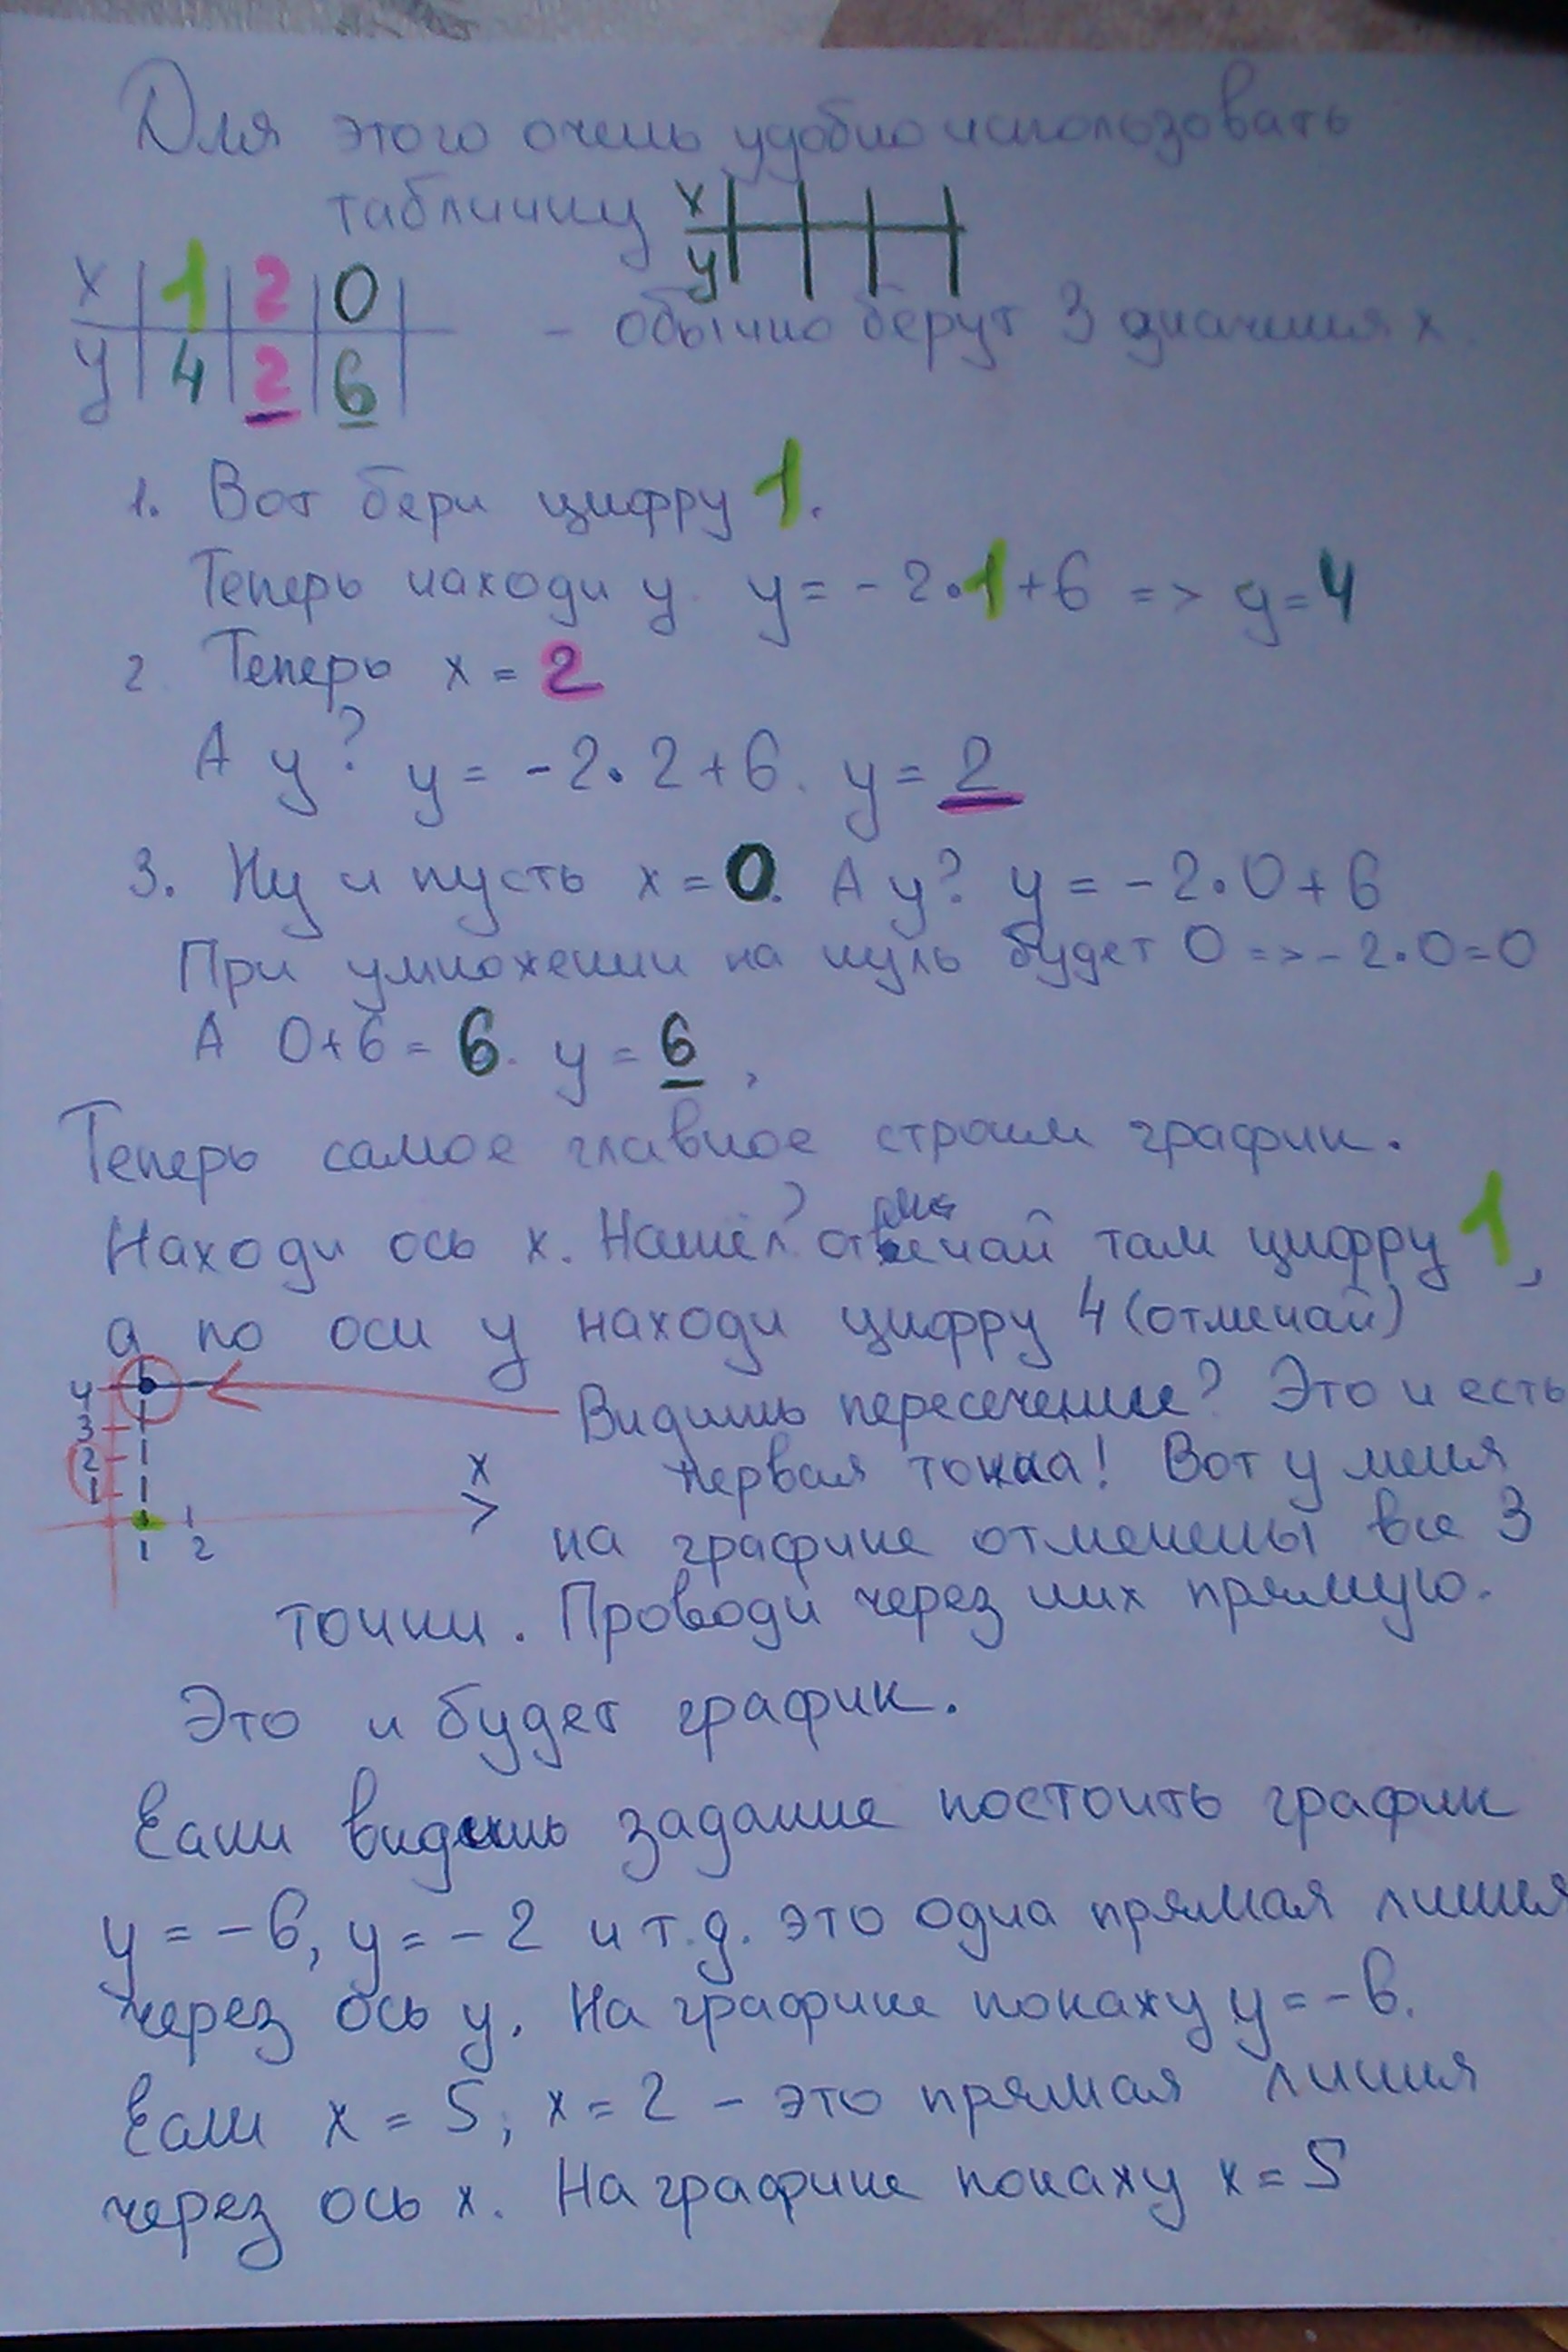 Для этого очень удобно использовать
табличку x
y
x 1 2 0
y 4 2 6
- Обычно берут 3 значения x.
1. Вот бери цифру 1.
Теперь находи y. y = - 2•1+6 => y=4
2 Теперь x = 2
А y? y = -2•2+6. y = 2
3. Ну и пусть x = 0. А y? y = -2•0+6
При умножении на нуль будет 0 => -2•0=0
А 0+6 = 6. y = 6,
Теперь самое главное строим график.
Находи ось x. Нашёл? отмечай там цифру 1,
а по оси y находи цифру 4 (отмечай)
Видишь пересечение? Это и есть
первая точка! Вот у меня
на графике отмечены все 3
точки. Проводи через них прямую.
4
3
2
1
x
1 2
Это и будет график.
Если видешь задание постоить график
y = -6, y = -2 и т.д. это одна прямая линия
через ось y. На графике покажу y = -6.
Если x = 5; x = 2 - это прямая линия
через ось x. На графике покажу x = 5